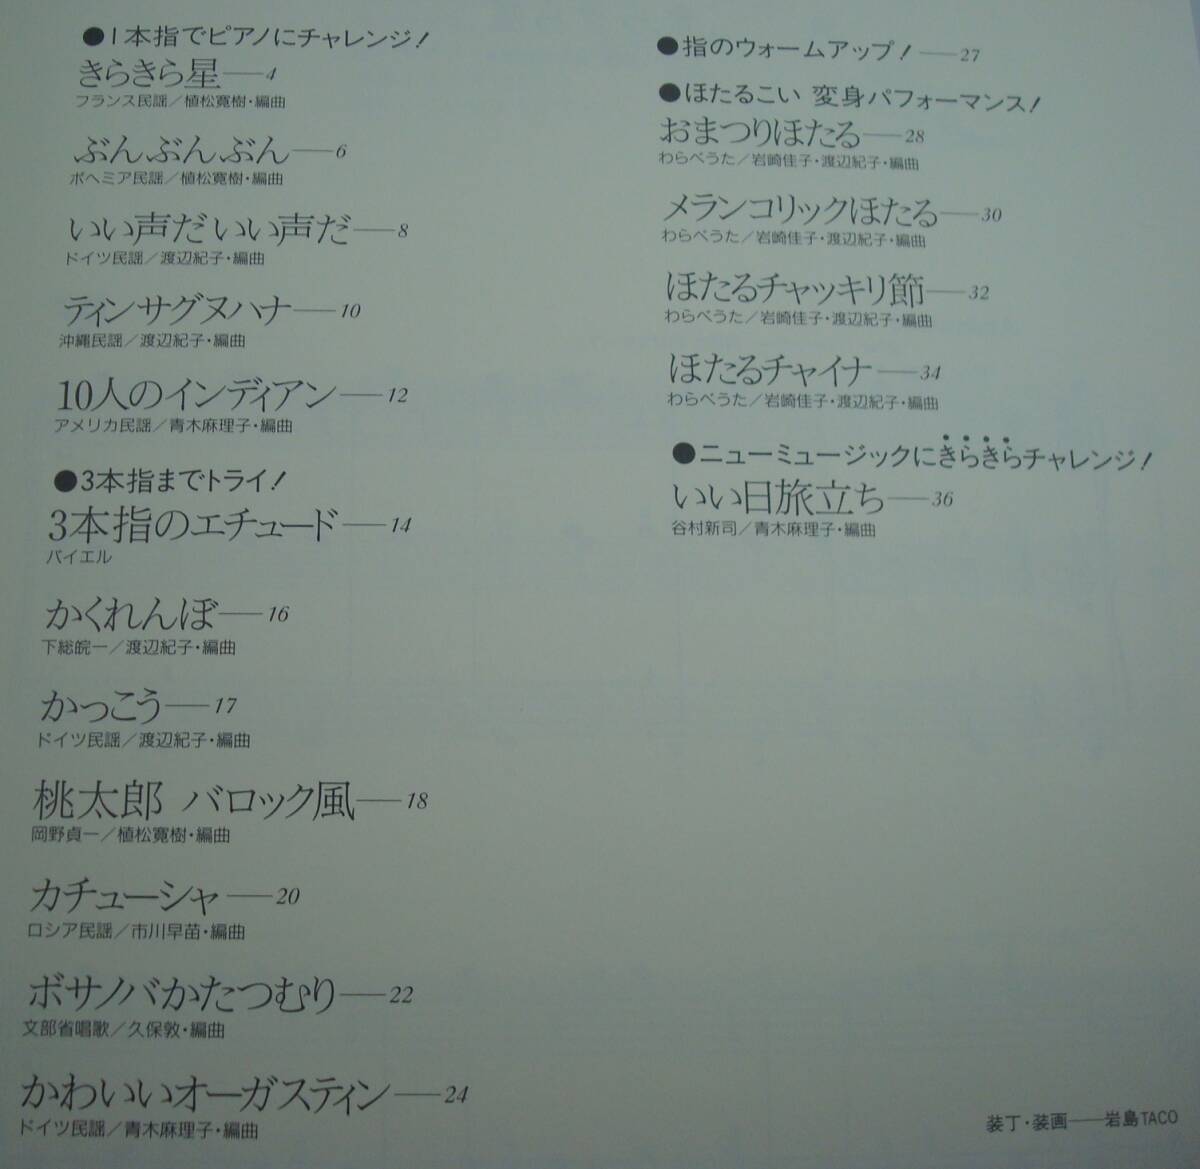 ●1本指でピアノにチャレンジ!
きらきら星——4
フランス民謡／植松寛樹・編曲
ぶんぶんぶん——6
ボヘミア民謡／植松寛樹・編曲
いい声だいい声だ——8
ドイツ民謡／渡辺紀子・編曲
ティンサグヌハナ——10
沖縄民謡／渡辺紀子・編曲
10人のインディアン——12
アメリカ民謡／青木麻理子・編曲
●3本指までトライ!
3本指のエチュード——14
バイエル
かくれんぼ——16
下総皖一／渡辺紀子・編曲
かっこう——17
ドイツ民謡／渡辺紀子・編曲
桃太郎 バロック風——18
岡野貞一／植松寛樹・編曲
カチューシャ——20
ロシア民謡／市川早苗・編曲
ボサノバかたつむり——22
文部省唱歌／久保敦・編曲
かわいいオーガスティン——24
ドイツ民謡／青木麻理子・編曲
●指のウォームアップ!——27
●ほたるこい 変身パフォーマンス!
おまつりほたる——28
わらべうた／岩崎佳子・渡辺紀子・編曲
メランコリックほたる——30
わらべうた／岩崎佳子・渡辺紀子・編曲
ほたるチャッキリ節——32
わらべうた／岩崎佳子・渡辺紀子・編曲
ほたるチャイナ——34
わらべうた／岩崎佳子・渡辺紀子・編曲
●ニューミュージックにきらきらチャレンジ!
いい日旅立ち——36
谷村新司／青木麻理子・編曲
装丁・装画——岩島TACO